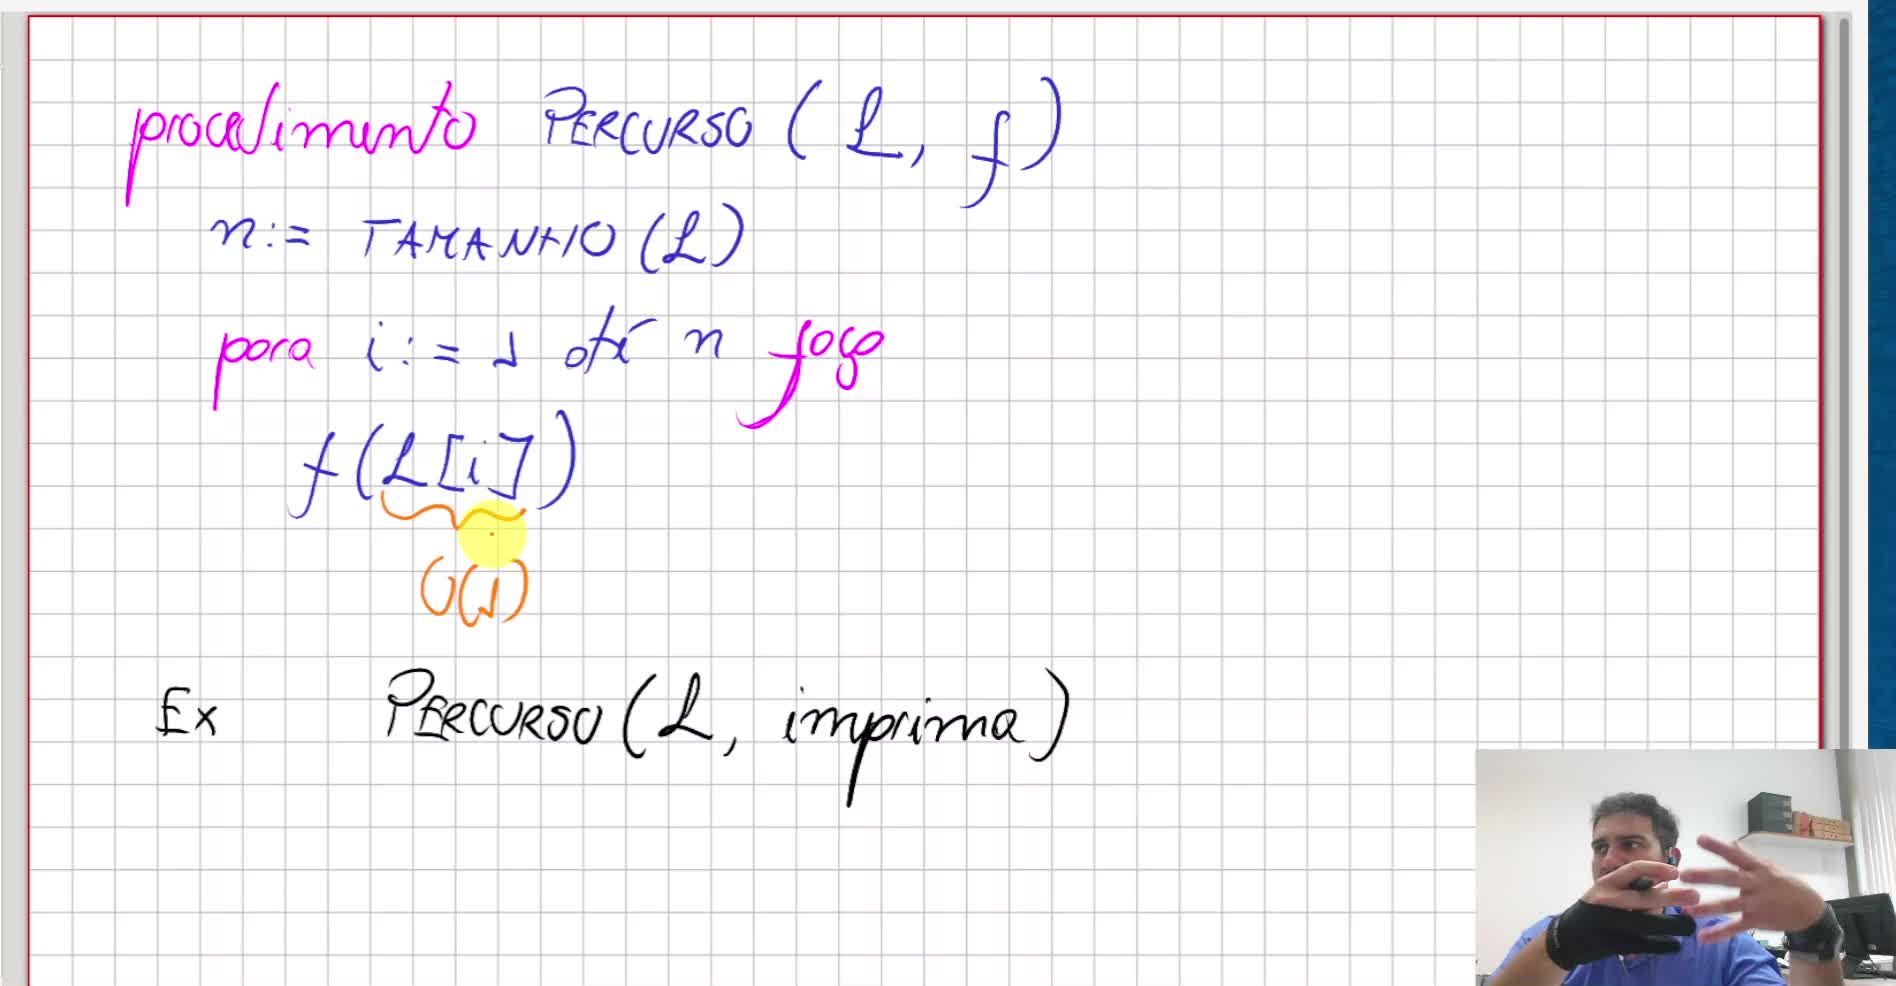 procedimento PERCURSO (L, f)
n := TAMANHO (L)
para i := 1 até n faça
f(L[i])
O(1)
Ex PERCURSO (L, imprima)